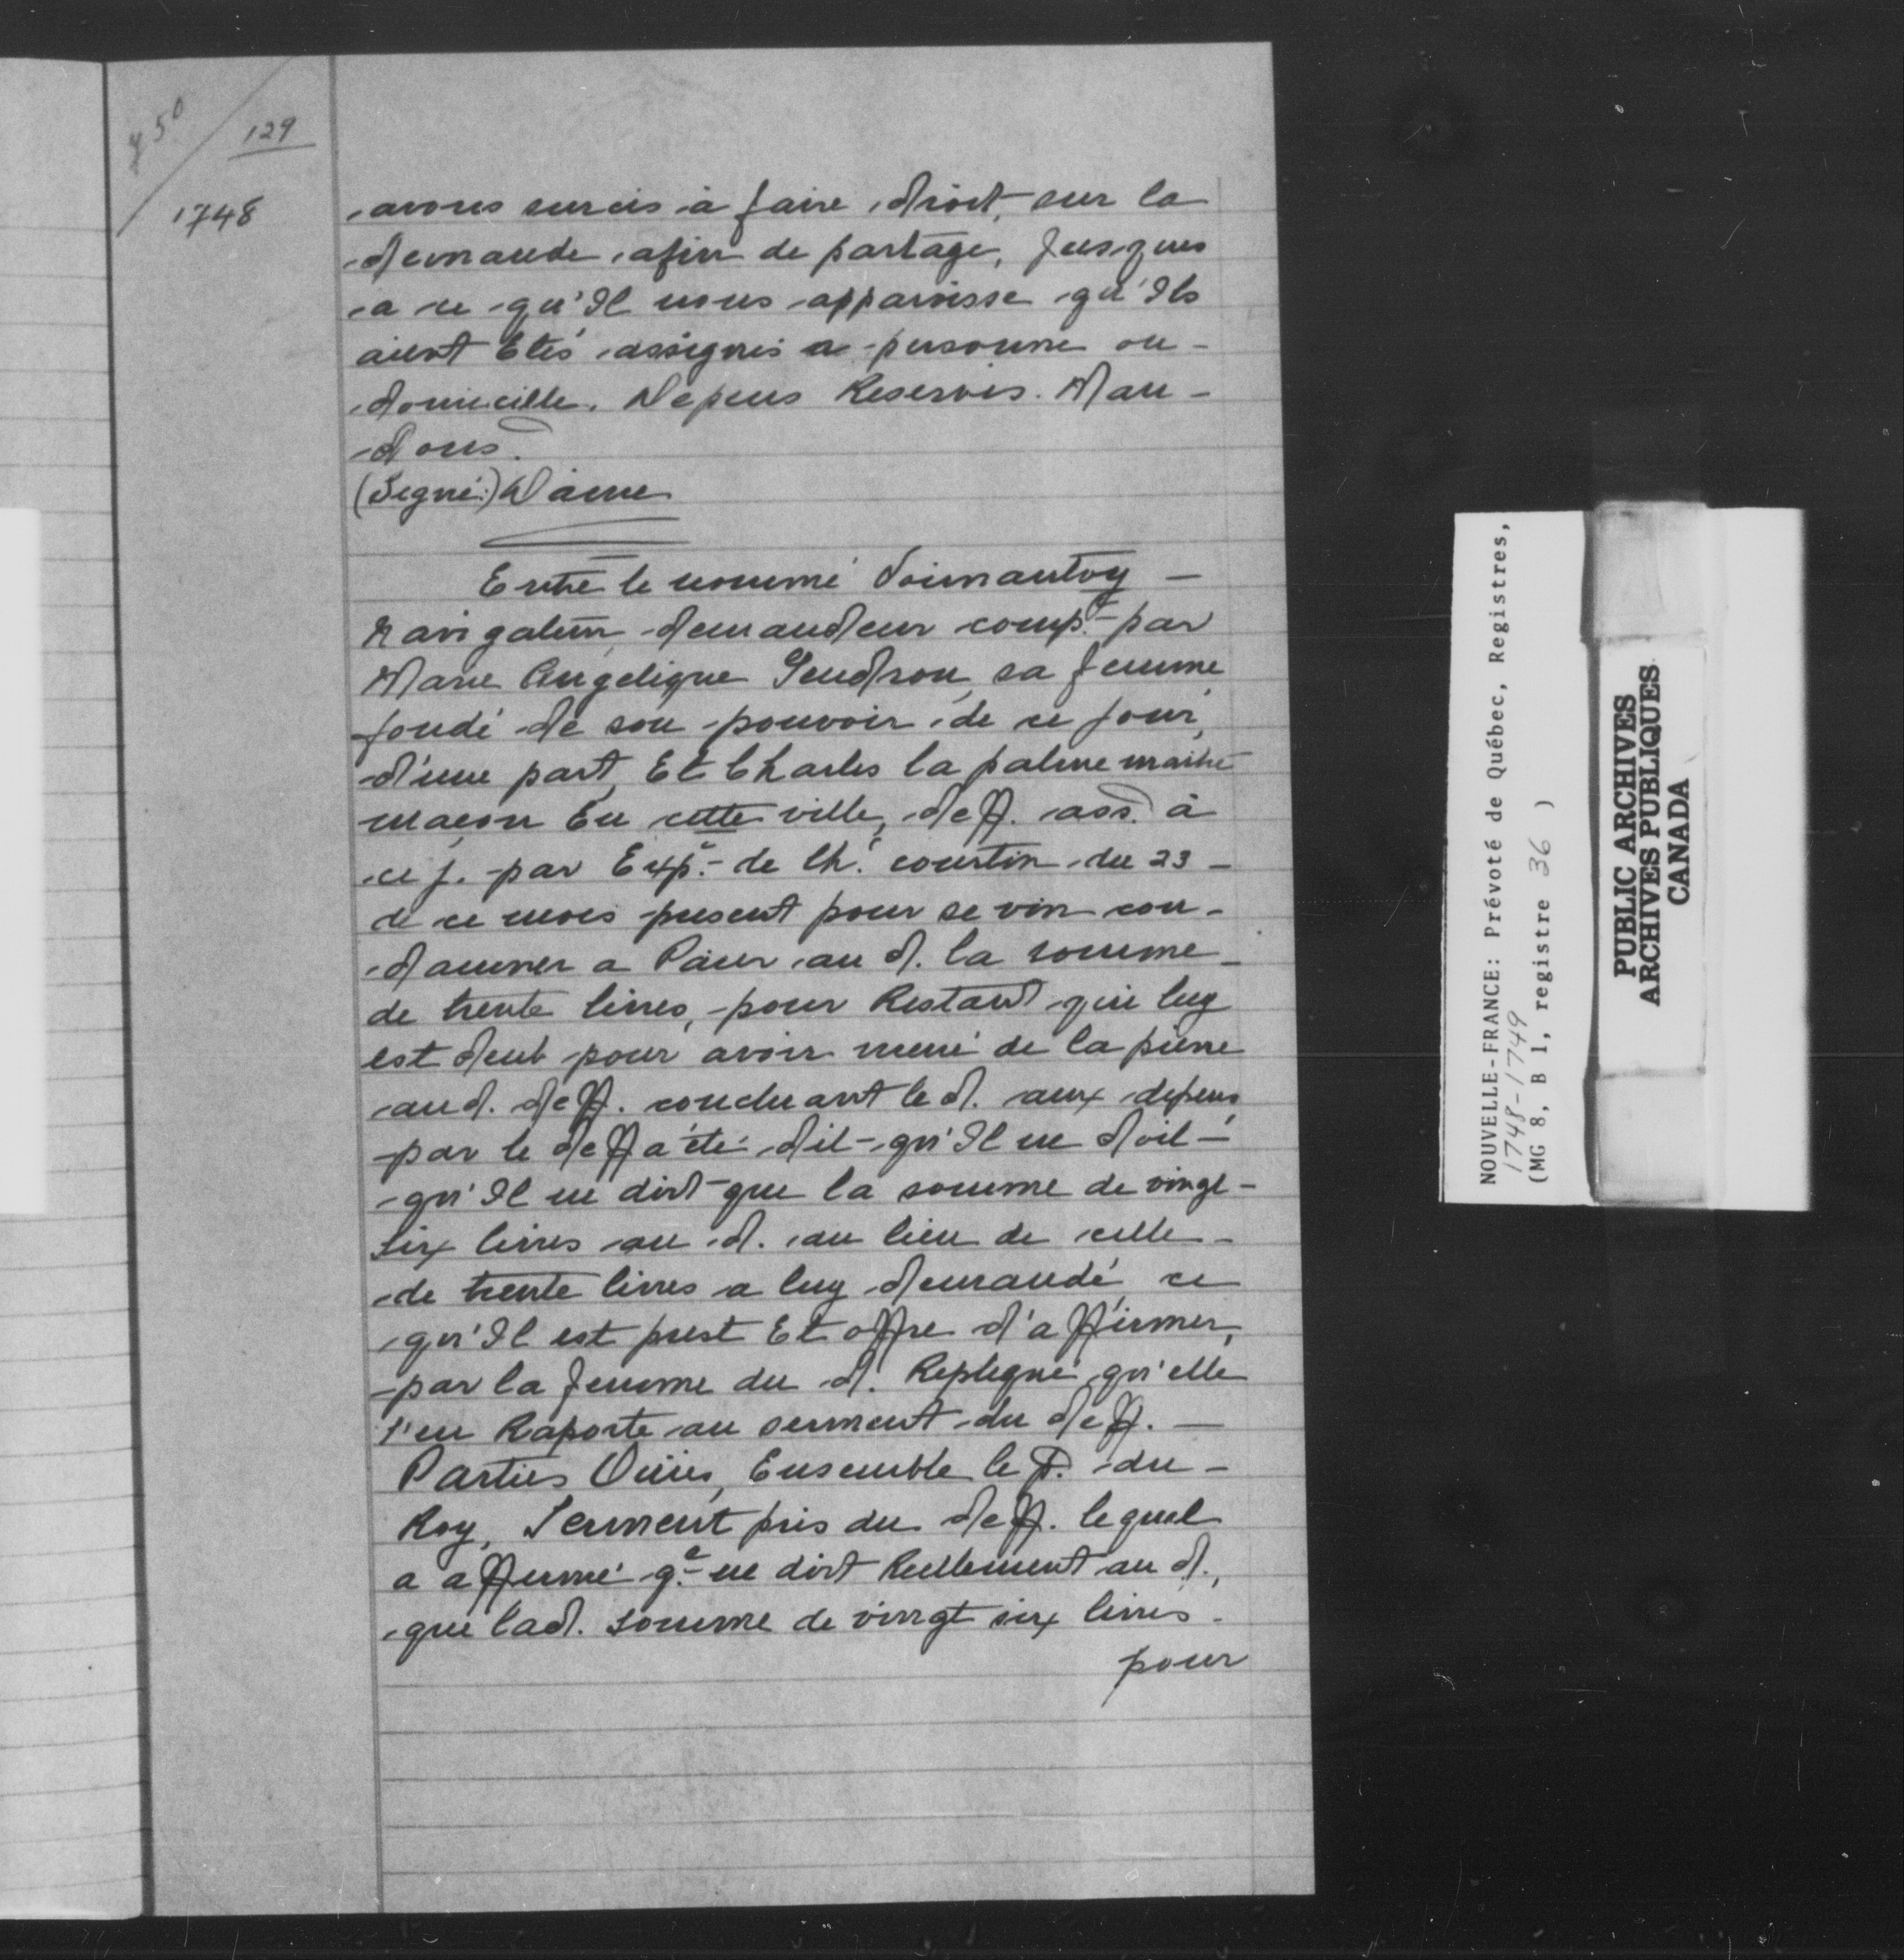 450
129
1748
avons surcis à faire droit, sur la
demande afin de partage, Jusques
a ce qu'Il nous apparoisse qu'Ils
aient Etés assignés a personne ou -
domicille. Depens Reservés. Man -
dons.
(Signé:) Daine
Entre le nommé
Navigateur, demandeur comp.t par
Marie Angelique Gendron, sa femme
fondé de son pouvoir de ce jour,
d'une part, Et Charles la palme maitre
maçon En cette ville, deff. ass. à
ce j. par Exp.t de Ch. courtin du 23 -
de ce mois present pour se voir con -
damner a Paier au d. la somme -
de trente livres, pour Restant qui luy
est deub pour avoir mené de la pierre
aud. deff. concluant le d. aux depens,
par le deff a été dit qu'Il ne doit -
qu'Il ne doit que la somme de vingt -
six livres au d. au lieu de celle -
de trente livres a luy demandé, ce
qu'Il est prest Et offre d'affirmer,
par la femme du d. Repliqué qu'elle
s'en Raporte au serment du deff. —
Parties Ouïes, Ensemble le P. du -
Roy, Serment pris du deff. lequel
a affirmé q.e ne doit Reellement au d.,
que lad. somme de vingt six livres -
pour
NOUVELLE-FRANCE: Prévoté de Québec, Registres,
1748-1749
(MG 8, B 1, registre 36 )
PUBLIC ARCHIVES
ARCHIVES PUBLIQUES
CANADA